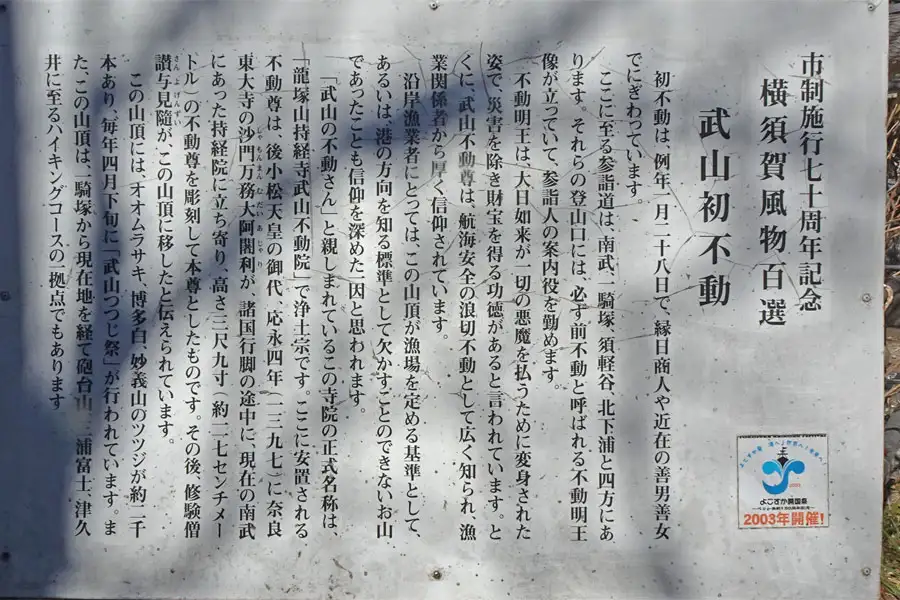 市制施行七十周年記念
横須賀風物百選
武山初不動
初不動は、例年一月二十八日で、縁日商人や近在の善男善女
でにぎわっています。
ここに至る参詣道は、南武、一騎塚、須軽谷、北下浦と四方にあ
ります。それらの登山口には、必ず前不動と呼ばれる不動明王
像が立っていて、参詣人の案内役を勤めます。
不動明王は、大日如来が一切の悪魔を払うために変身された
姿で、災害を除き財宝を得る功徳があると言われています。と
くに、武山不動尊は、航海安全の浪切不動として広く知られ、漁
業関係者から厚く信仰されています。
沿岸漁業者にとっては、この山頂が漁場を定める基準として、
あるいは、港の方向を知る標準として欠かすことのできないお山
であったことも信仰を深めた一因と思われます。
「武山の不動さん」と親しまれているこの寺院の正式名称は
「龍塚山持経寺武山不動院」で浄土宗です。ここに安置される
不動尊は、後小松天皇の御代、応永四年(一三九七)に奈良
東大寺の沙門万務大阿闍利が、諸国行脚の途中に、現在の南武
にあった持経院に立ち寄り、高さ三尺九寸(約一一七センチメー
トル)の不動尊を彫刻して本尊としたものです。その後、修験僧
讃与見随が、この山頂に移したと伝えられています。
この山頂には、オオムラサキ、博多白、妙義山のツツジが約二千
本あり、毎年四月下旬に「武山つつじ祭」が行われています。ま
た、この山頂は、一騎塚から現在地を経て砲台山、三浦富士、津久
井に至るハイキングコースの一拠点でもあります
よこすか開国祭
2003年開催!